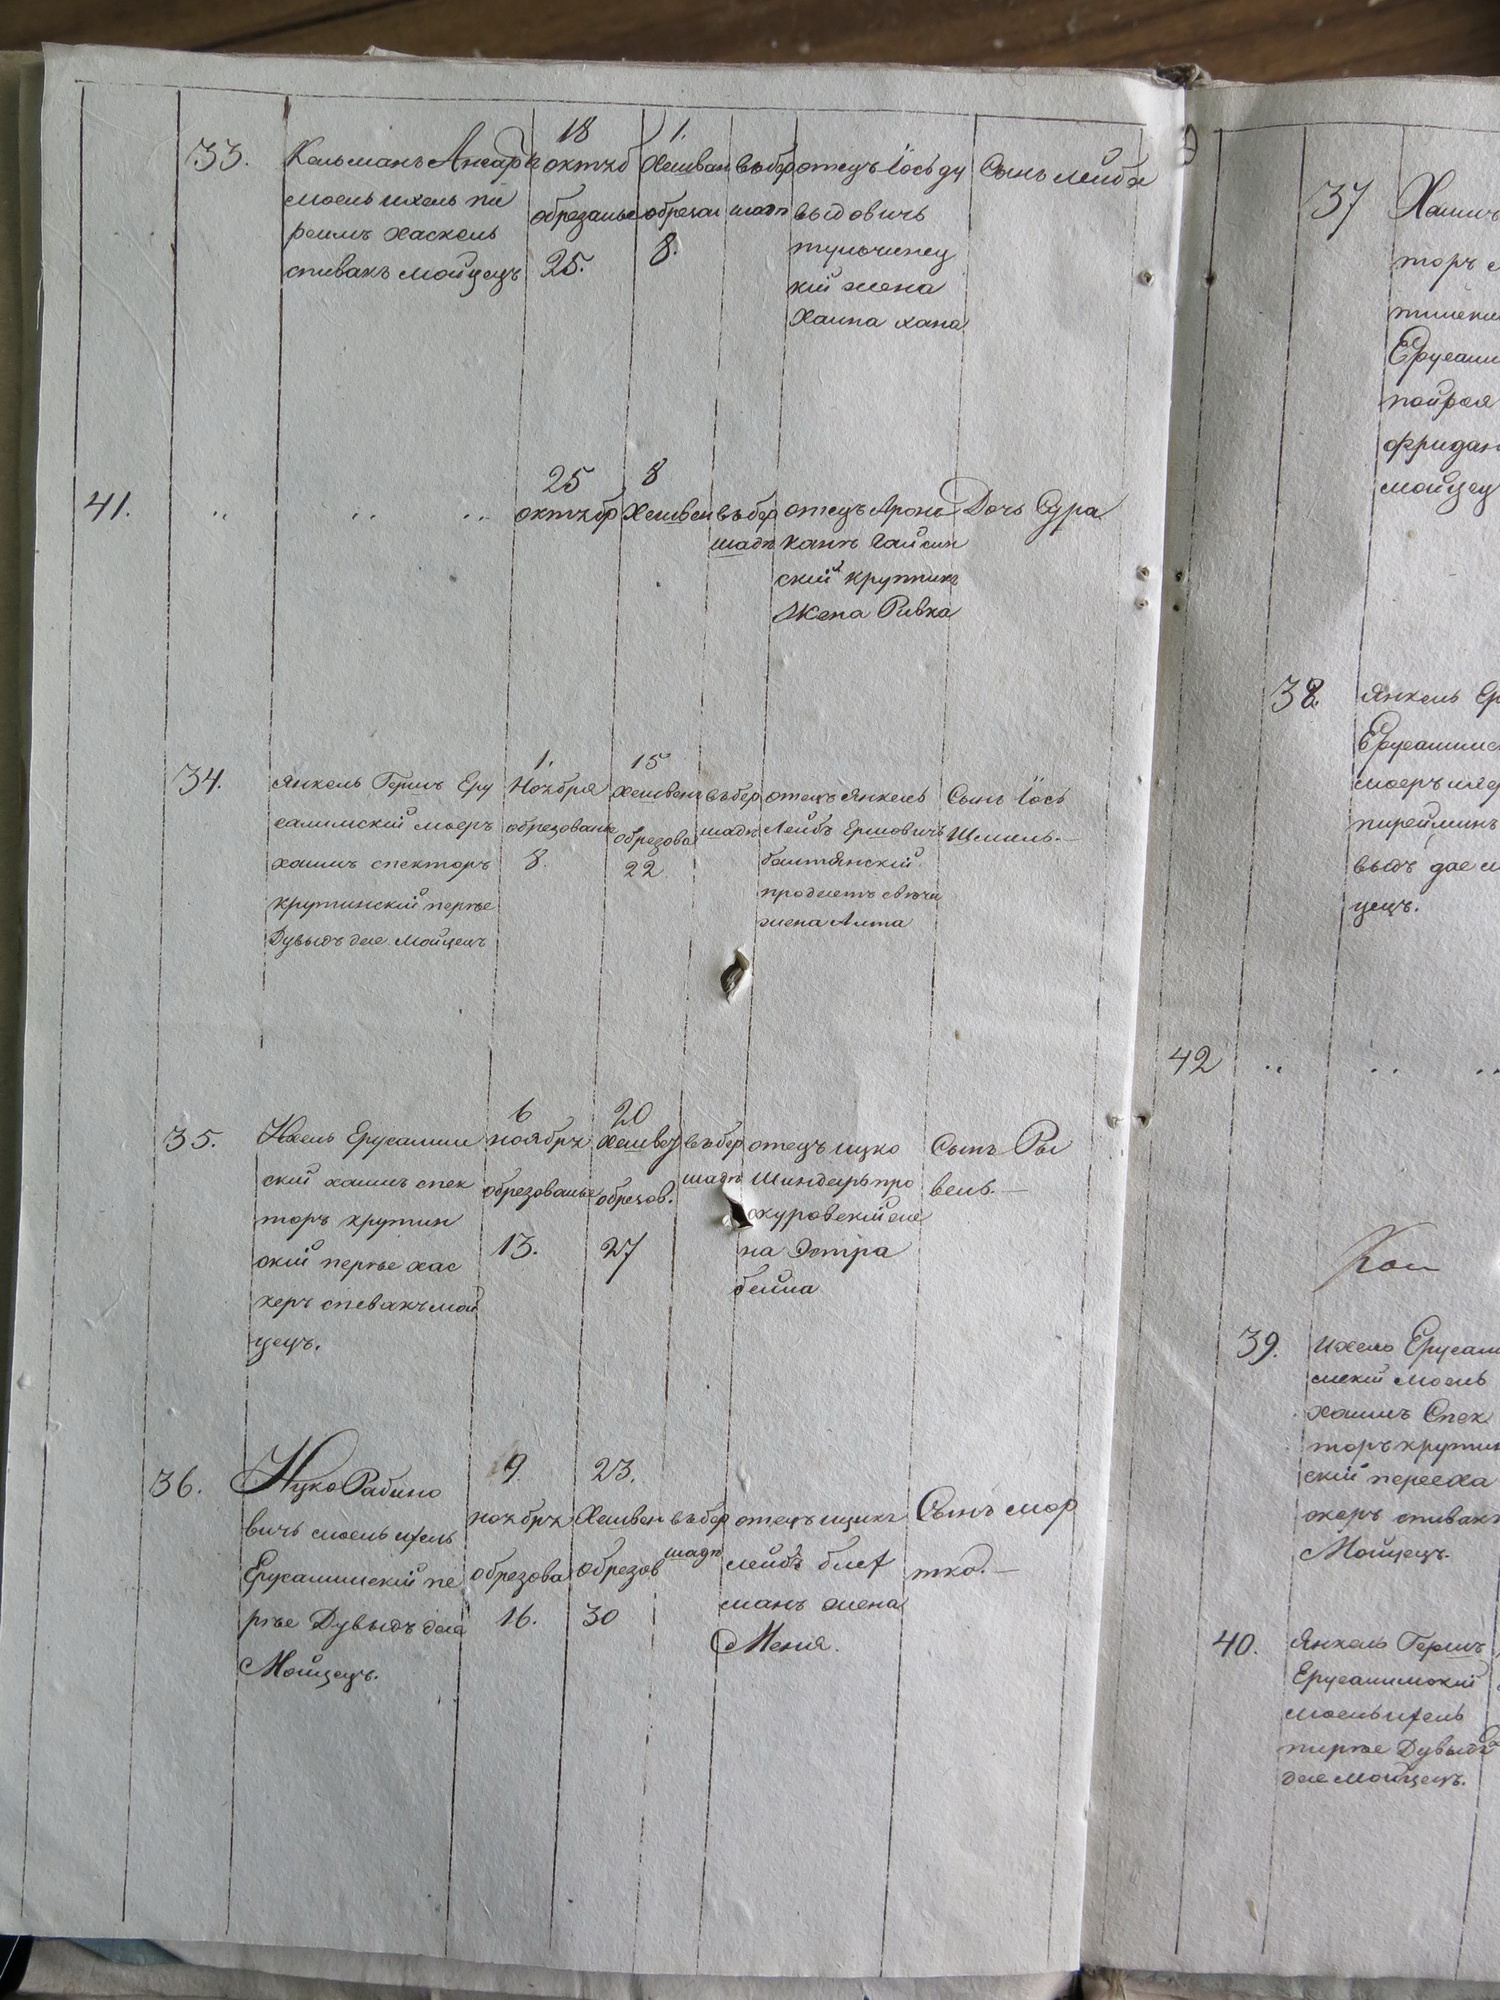 33.
Кельманъ Ансаръ
моель ихель пи
реимъ хаскель
спивакъ мойцецъ
18
октяб
обрезанье
25.
1.
Хешван
обрезан
8.
въбер
шадъ
отецъ Іось ду
выдовичь
тульчинец
кій жена
Хаина хана
Сынъ лейбъ
41.
25
октябр
8
Хешвен
въбер
шадъ
отецъ Аронъ
Кантъ гайсин
скій крупникъ
Жена Ривка
Дочь Сура
34.
Янкель Гершъ Еру
салимскій моеръ
хаимъ спекторъ
крутинскій перъе
Дувыдъ дее мойцецъ
1.
Ноября
обрезованье
8.
15
Хешвенъ
обрезова
22
въбер
шадъ
отецъ Янкель
Лейбъ Ершовичъ
балтянскій
продаетъ свечи
жена Алта
Сынъ Іось
Шмиль.—
35.
Ихель Ерусалим
скій хаимъ спек
торъ крутин
скій перъе хас
керъ спевакъ мой
цецъ.
6
ноября
обрезованье
13.
20
Хешвен
обрезов.
27
въбер
шадъ
отецъ ицко
Шиндеръ про
скуровскій же
на Эстра
бейла
Сынъ Ры
вень.—
36.
Ицко Рабино
вичъ моель ихель
Ерусалимскій пе
ръе Дувыдъ дее
Мойцецъ.
9.
ноября
обрезова
16.
23.
Хешвен
обрезов
30
въбер
шадъ
отецъ ицикъ
лейбъ
манъ жена
Меня.
Сынъ мор
тко.—
37
Хаимъ
торъ
Ерусали
пойрея
фридан
мойцец
38.
Янкель Ер
Ерусалимс
моеръ
пирейминъ
выдъ дее м
цецъ.
42
39.
Ихель Ерусали
мскій моель
хаимъ Спек
торъ крутин
скій перееха
скеръ спивакъ
Мойцецъ.
40.
Янкель Гершъ
Ерусалимскій
моель ихель
пиръе Дувыдъ
дее мойцецъ.